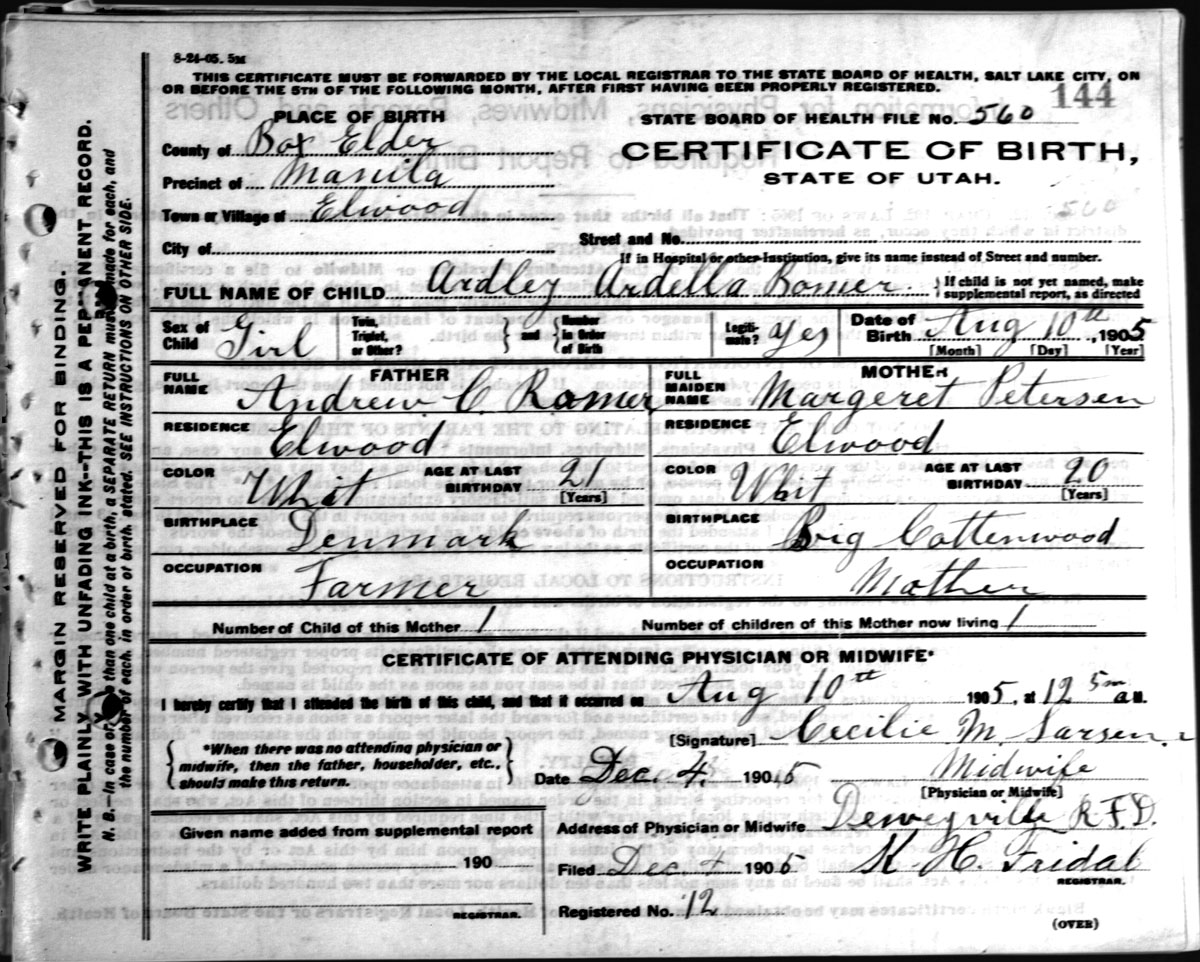 8-24-05. 5M
THIS CERTIFICATE MUST BE FORWARDED BY THE LOCAL REGISTRAR TO THE STATE BOARD OF HEALTH, SALT LAKE CITY, ON
OR BEFORE THE 5TH OF THE FOLLOWING MONTH, AFTER FIRST HAVING BEEN PROPERLY REGISTERED.
144
PLACE OF BIRTH
STATE BOARD OF HEALTH FILE No. 560
County of Box Elder
CERTIFICATE OF BIRTH,
Precinct of Manila
STATE OF UTAH.
Town or Village of Elwood
560
City of
Street and No.
If in Hospital or other Institution, give its name instead of Street and number.
FULL NAME OF CHILD Ardley Ardella Romer
If child is not yet named, make
supplemental report, as directed
Sex of Child Girl
Twin, Triplet, or Other?
and
Number in Order of Birth
Legiti-mate? yes
Date of Birth Aug 10th, 1905
[Month] [Day] [Year]
FATHER
FULL NAME Andrew C. Romer
RESIDENCE Elwood
COLOR Whit
AGE AT LAST BIRTHDAY 21
[Years]
BIRTHPLACE Denmark
OCCUPATION Farmer
MOTHER
FULL MAIDEN NAME Margeret Petersen
RESIDENCE Elwood
COLOR Whit
AGE AT LAST BIRTHDAY 20
[Years]
BIRTHPLACE Big Cottenwood
OCCUPATION Mother
Number of Child of this Mother 1
Number of children of this Mother now living 1
CERTIFICATE OF ATTENDING PHYSICIAN OR MIDWIFE*
I hereby certify that I attended the birth of this child, and that it occurred on Aug 10th 1905, at 12 5m a M.
*When there was no attending physician or
midwife, then the father, householder, etc.,
should make this return.
[Signature] Cecilie M. Larsen
Date Dec. 4. 1905
Midwife
[Physician or Midwife]
Given name added from supplemental report
190
REGISTRAR.
Address of Physician or Midwife Deweyville R.F.D.
Filed Dec 4 1905
K. H. Fridal
REGISTRAR.
Registered No. 12
(OVER)
MARGIN RESERVED FOR BINDING.
WRITE PLAINLY WITH UNFADING INK--THIS IS A PERMANENT RECORD.
N. B.--In case of more than one child at a birth, a SEPARATE RETURN must be made for each, and
the number of each, in order of birth, stated. SEE INSTRUCTIONS ON OTHER SIDE.